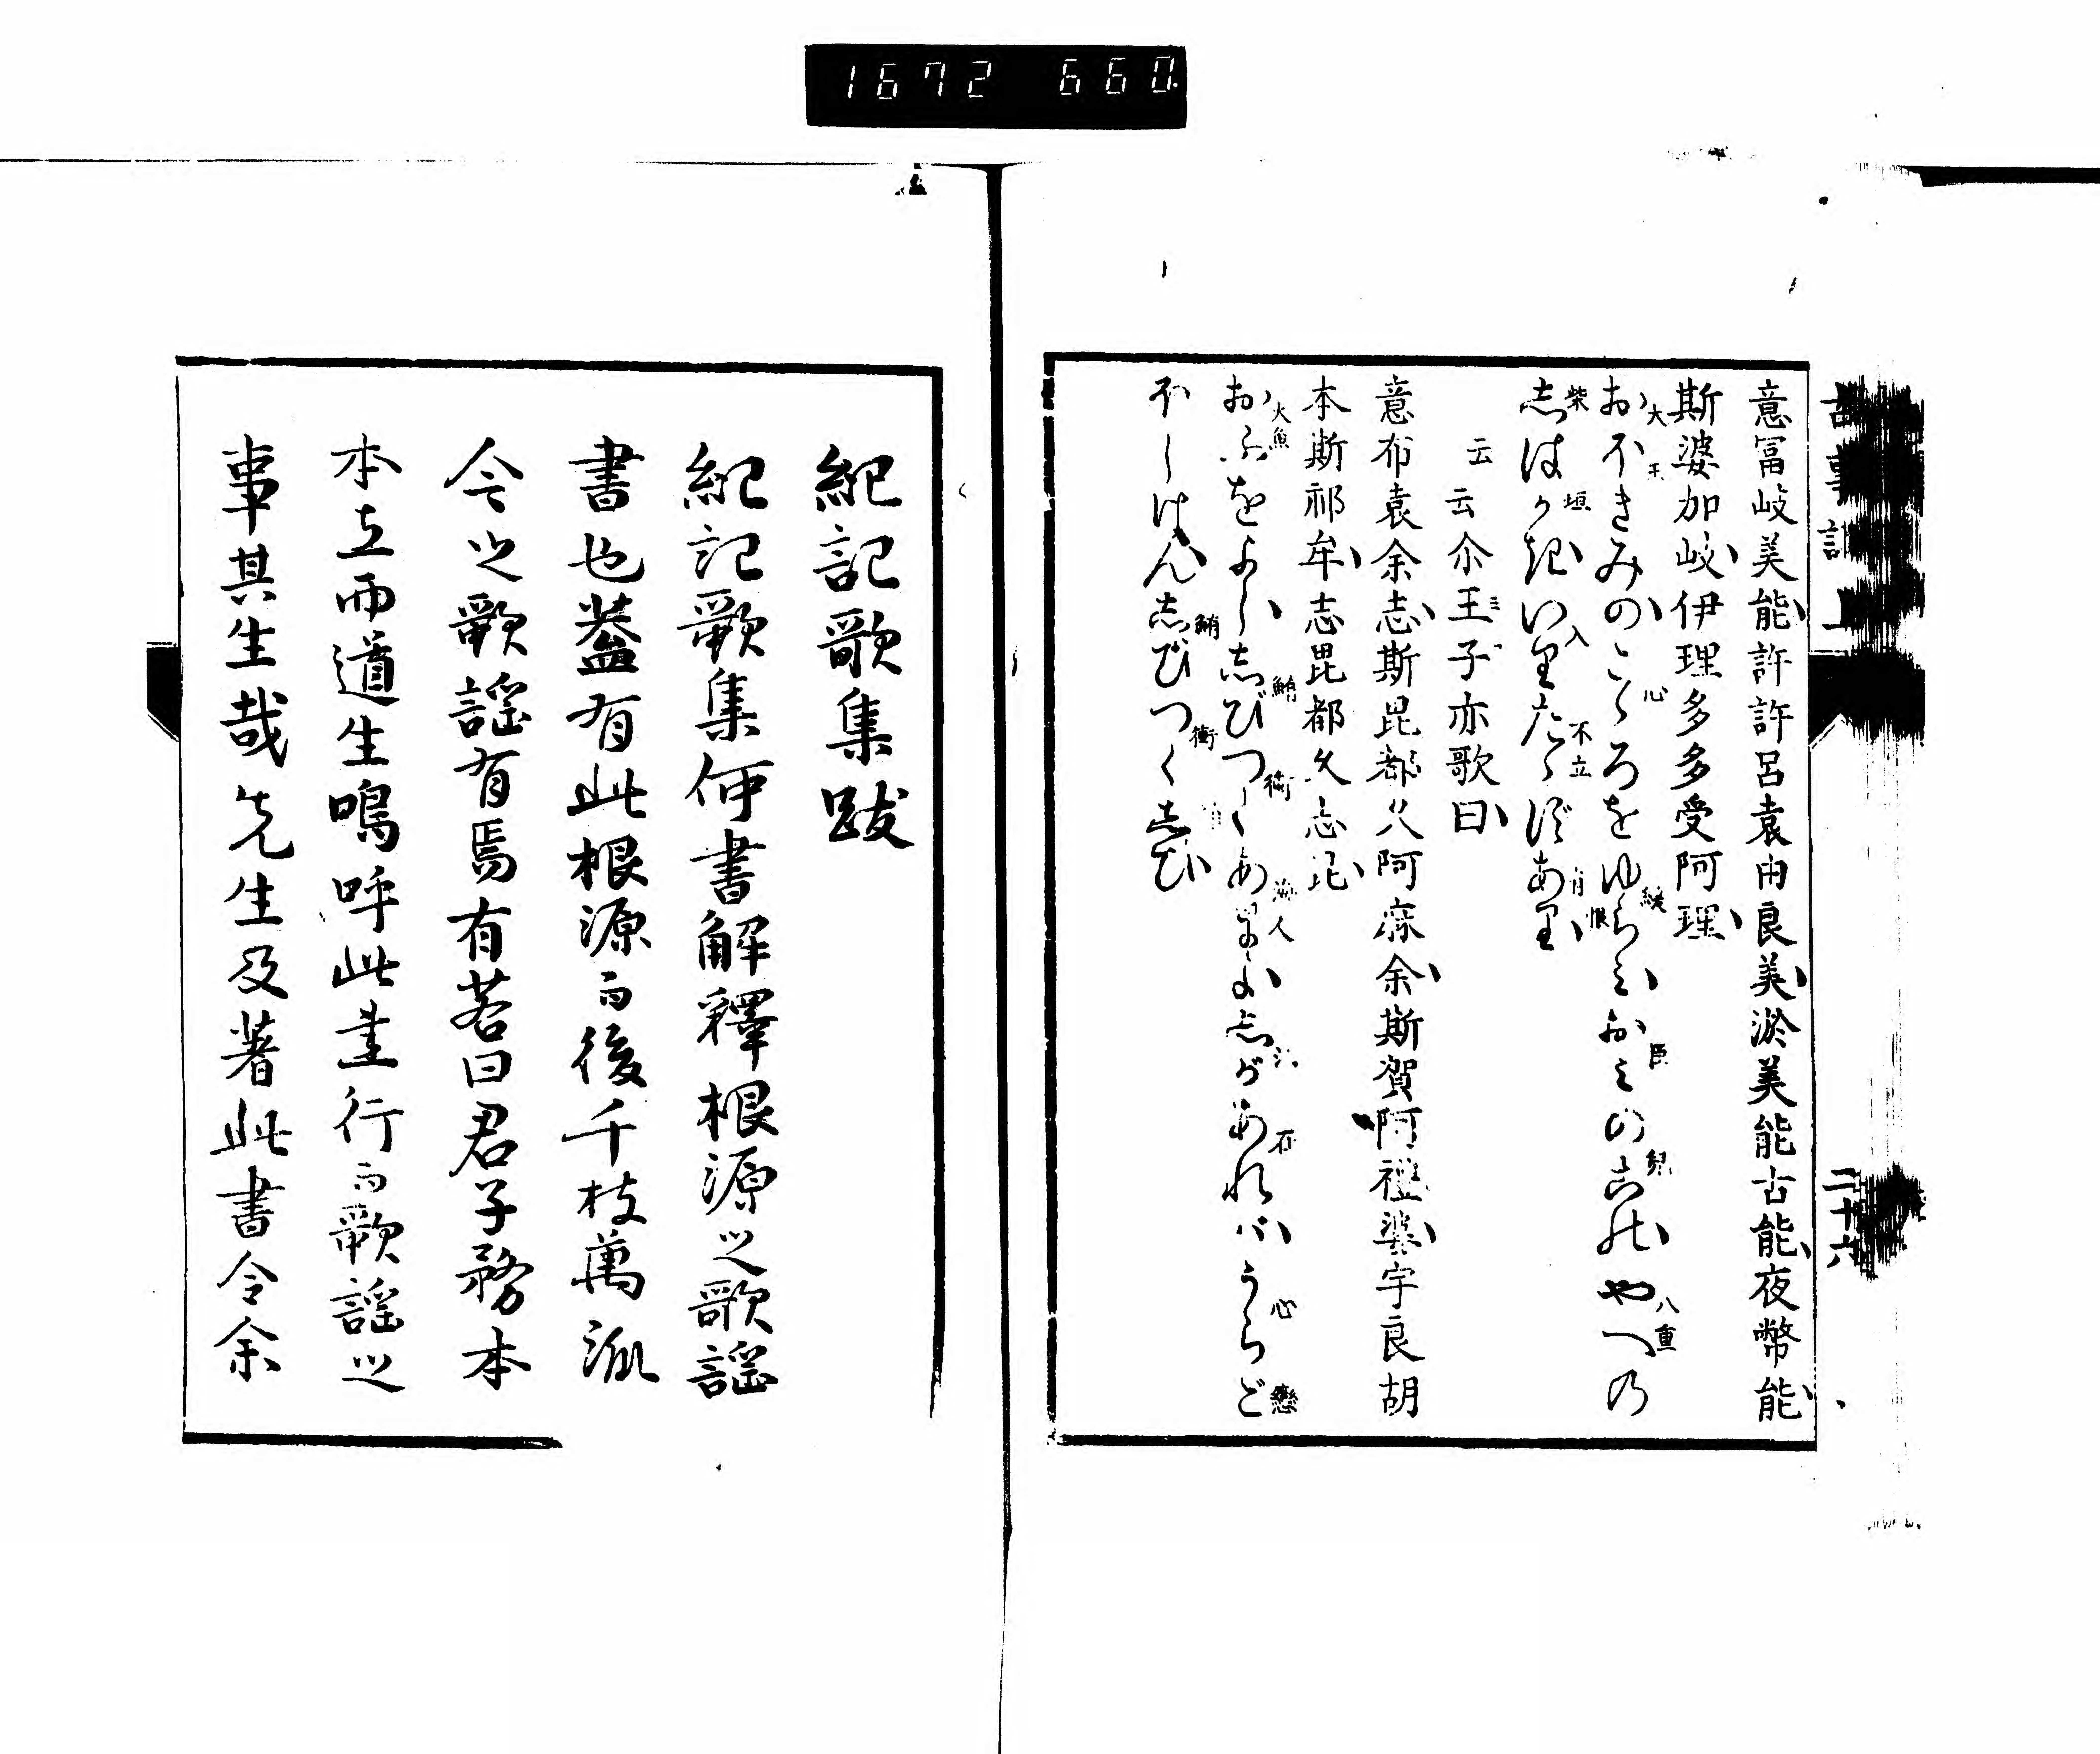 1672 660
意冨岐美能許許呂袁由良美淤美能古能夜幣能
斯婆加岐伊理多多受阿理
おほきみのこゝろをゆらみおみのこの やへの
大 王 心 緩 臣 八重
しばかきいりたゝずあり
柴 垣 入 不立 有
云云尒王子亦歌曰
意布袁余志斯毘都久阿麻余斯賀阿禮婆宇良胡
本斯祁牟志毘都久志毘
おふをよししびつくあまよしがあればうらご
大魚 鮪 衝 海人 心 戀
ほしけんしびつくしび
鮪 衝
二十六
紀記歌集跋
紀記歌集何書解釋根源之歌謡
書也葢有此根源而後千枝萬派
今之歌謡有焉有若曰君子務本
本立而道生嗚呼此書行而歌謡之
事其生哉先生及著此書令余